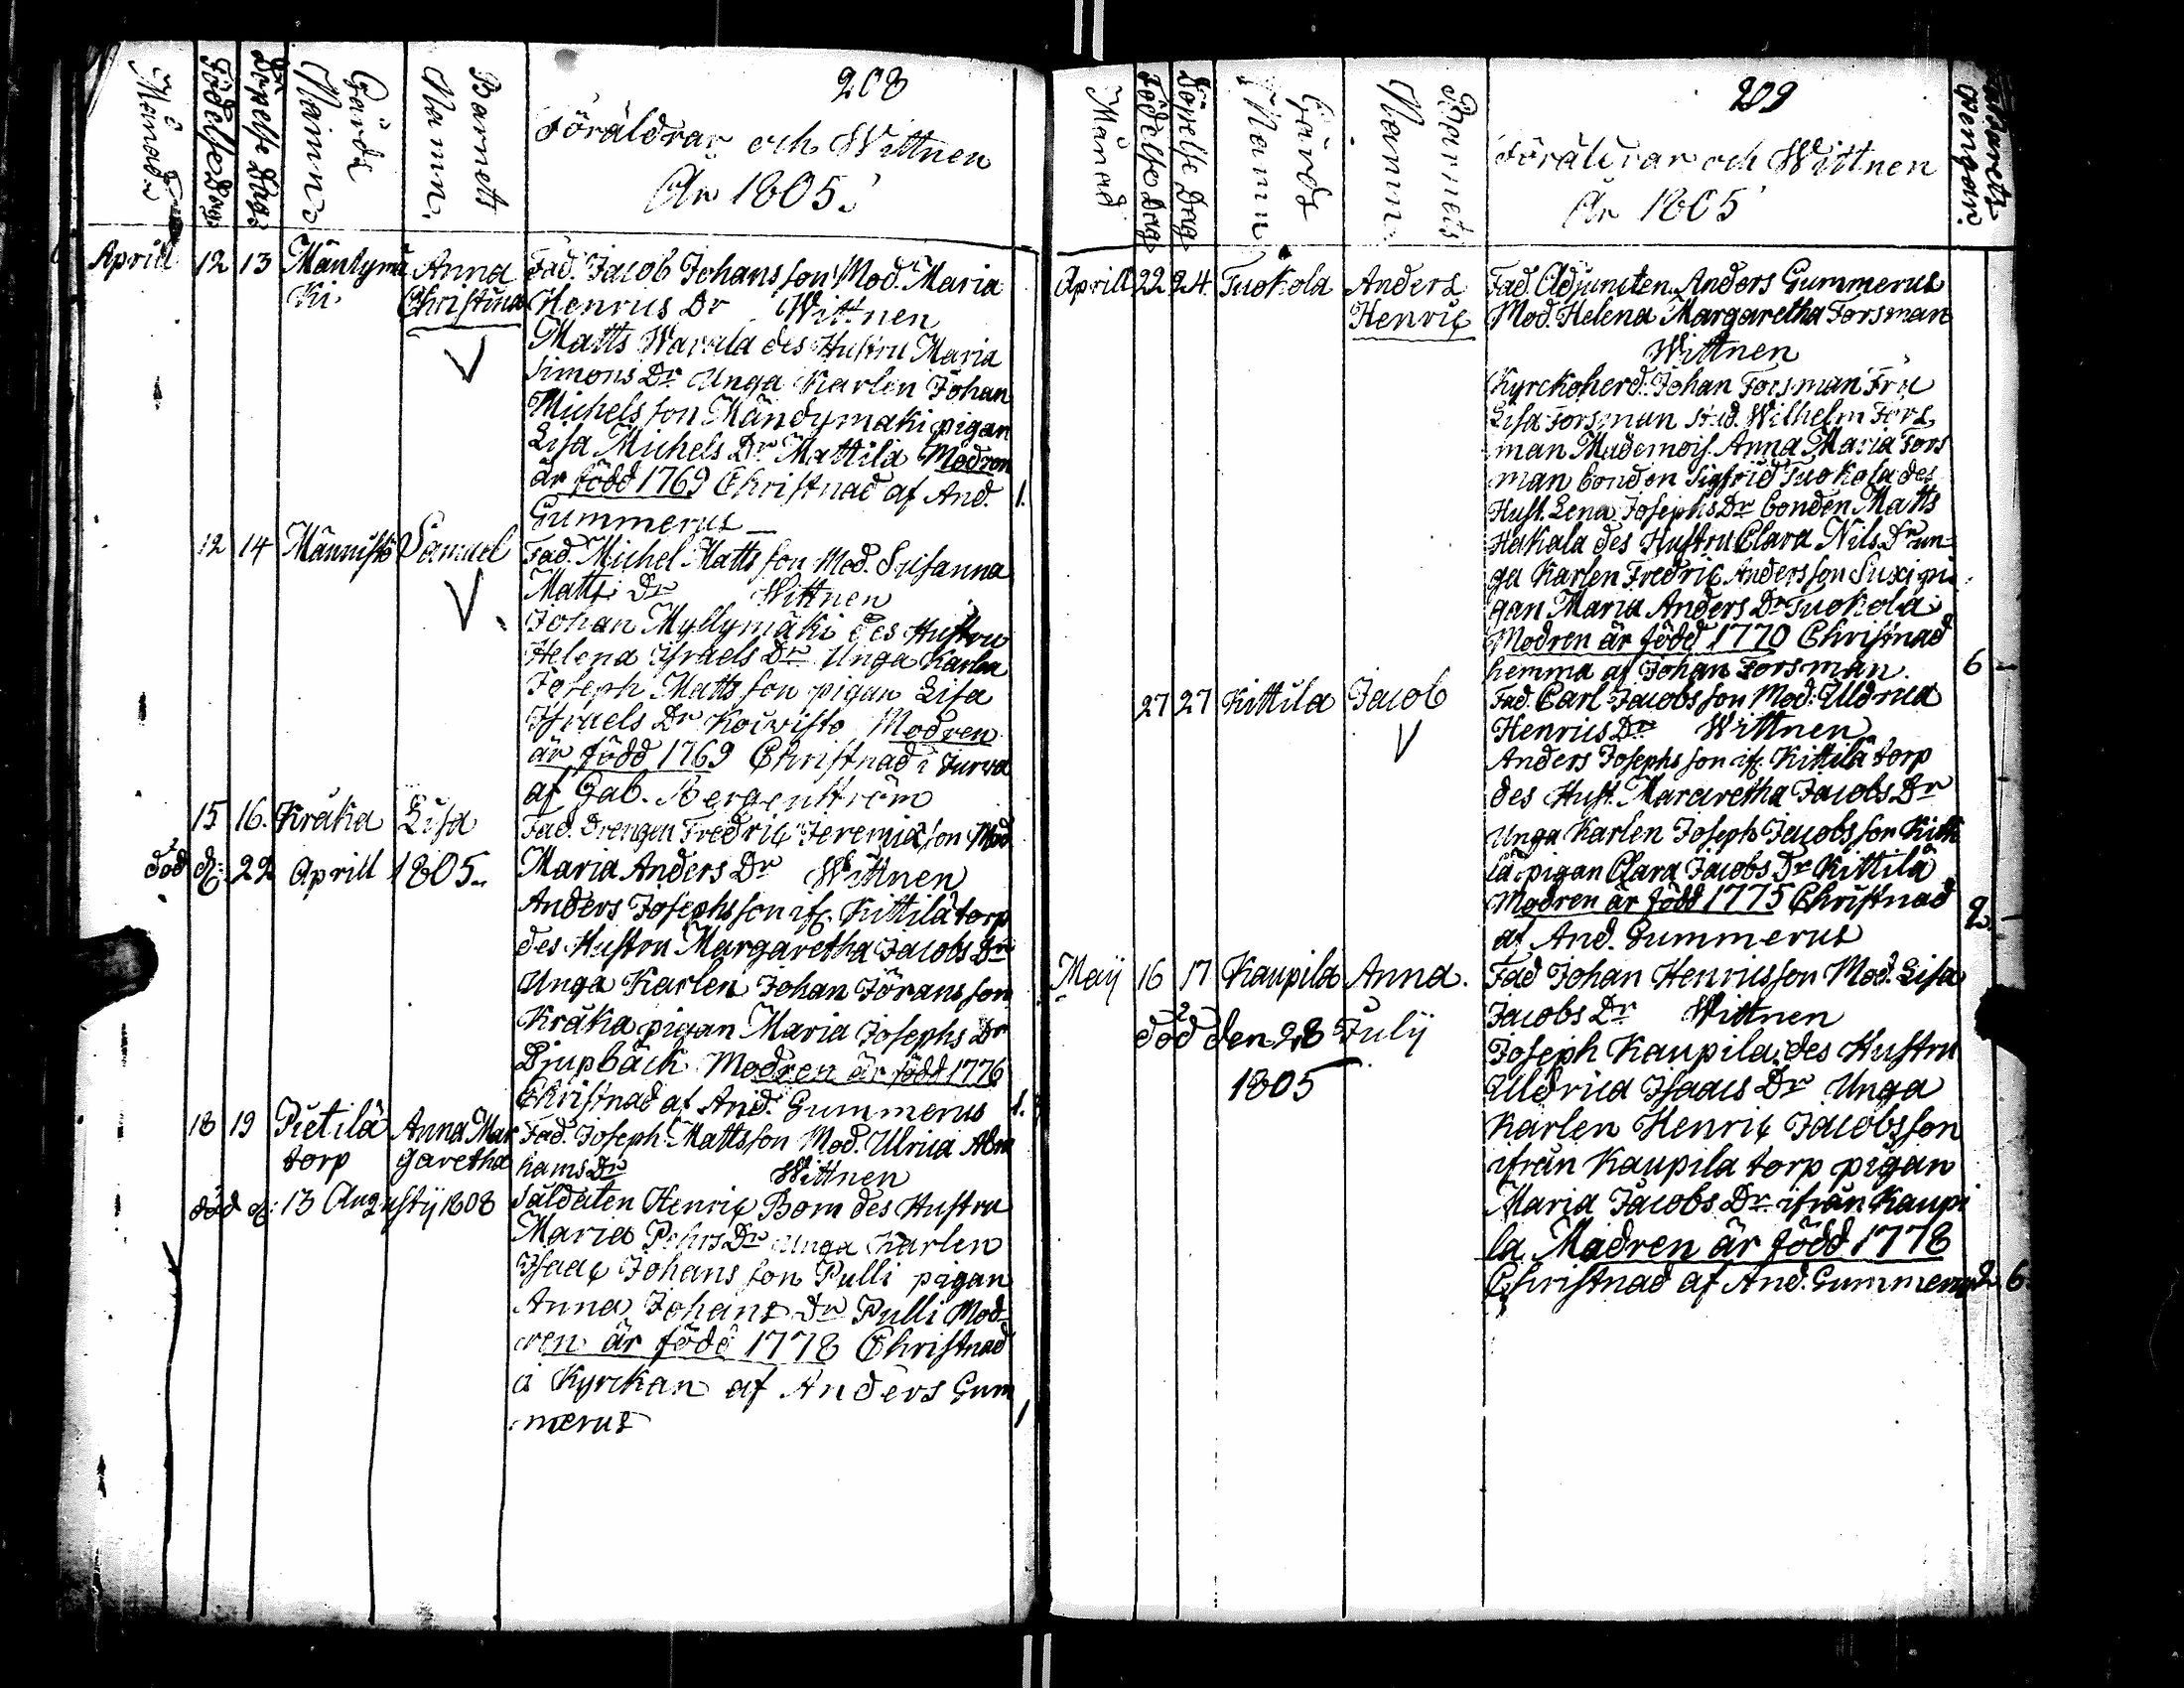 208
Månad
Födelse Dag
Döpelse Dag
Gårds
Namn
Barnets
Namn.
Föräldrar och Wittnen
År 1805.
Aprill 12 13 Mäntymä Anna Fad. Jacob Johansson Mod. Maria
ki. Christina Henrics Dr Wittnen
Matts Warala des Hustru Maria
Simons Dr Unga Karlen Johan
Michelsson Mändymäki pigan
Lisa Michels Dr Mattila Modren
är född 1769 Christnad af And. 1.
Gummerus
12 14 Männistö Samuel Fad. Michel Mattsson Mod. Susanna
Matts Dr Wittnen
Johan Myllymäki des Hustru
Helena Israels Dr Unga Karlen
Joseph Mattsson pigan Lisa
Israels Dr Koivisto Modren
är född 1769 Christnad i Jurva
af Gab. Bergenström
15 16. Kråka Lisa Fad. Drengen Fredric Jeremiason Mod
död d: 22 Aprill 1805. Maria Anders Dr Wittnen
Anders Josephsson if. Kittilä torp
des Hustru Margaretha Jacobs Dr
Unga Karlen Johan Göransson
Kråka pigan Maria Josephs Dr
Djupbäck Modren är född 1776
Christnad af And. Gummerus 1.
18 19 Pietilä Anna Mar Fad. Joseph Mattsson Mod. Ulrica Abra
torp garetha hams Dr Wittnen
död d: 13 Augustij 1808 Saldaten Henric Bom des Hustru
Maria Pehrs Dr Unga Karlen
Isaac Johansson Pulli pigan
Anna Johans Dr Pulli Mod
ren är född 1778 Christnad
i Kyrckan af Anders Gum
merus 1
209
Månad
Födelse Dag
Döpelse Dag
Gårds
Namn
Barnets
Namn.
Föräldrar och Wittnen
År 1805
Aprill 22 24. Tuokola Anders Fad. Adjuncten Anders Gummerus
Henric Mod. Helena Margaretha Forsman
Wittnen
Kyrckoherd. Johan Forsman Fru
Lisa Forsman Stud. Wilhelm Fors
man Mademois. Anna Maria Fors
man bonden Sigfrid Tuokola des
Hust. Lena Josephs Dr bonden Matts
Hakala des Hustru Clara Nils Dr un-
ga Karlen Fredric Andersson Suxi pi
gan Maria Anders Dr Tuokola
Modren är född 1770 Christnad
hemma af Johan Forsman. 6
27 27 Kittila Jacob Fad. Carl Jacobsson Mod. Uldrica
Henrics Dr Wittnen
Anders Josephsson if. Kittilä torp
des Hust. Margretha Jacobs Dr
Unga Karlen Joseph Jacobsson Kitti
lä pigan Clara Jacobs Dr Kittilä
Modren är född 1775 Christnad
af And. Gummerus 2.
Maij 16 17 Kaupila Anna. Fad Johan Henricsson Mod. Lisa
död den 28 Julij Jacobs Dr Wittnen
1805 Joseph Kaupila des Hustru
Uldrica Isaacs Dr Unga
Karlen Henric Jacobsson
ifrån Kaupila torp pigan
Maria Jacobs Dr ifrån Kaupi
la Modren är född 1778
Christnad af And. Gummerus 2 6